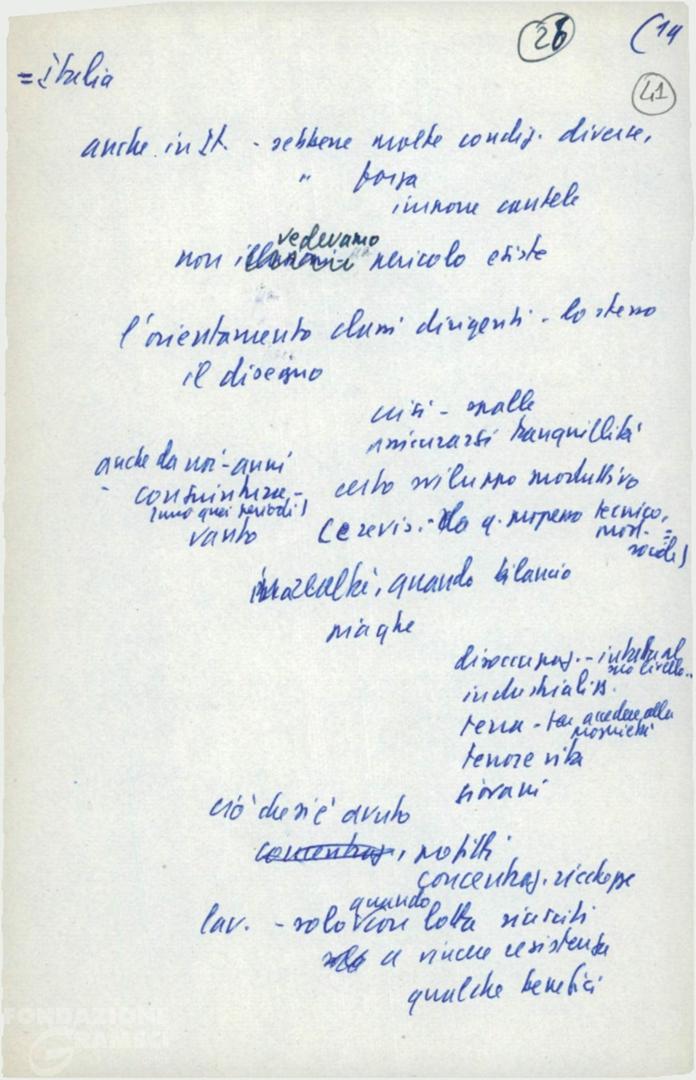 26
(14
41
= Italia
anche in It. - sebbene molte condiz. diverse,
" forza
impone cautele
non vedevamo pericolo esiste
l'orientamento classi dirigenti - lo stesso
il disegno
crisi - spalle
assicurarsi tranquillità
anche da noi - anni
congiuntura -
(uno quei periodi)
vanto
certo sviluppo produttivo
(cervis. - da q. progresso tecnico,
prod. =
sociale)
intaccati, quando bilancio
piaghe
disoccupaz. - intatta al
suo livello..
industrializz.
terra - far accedere alla
proprietà
tenore vita
giovani
ciò che si è avuto
concentraz., profitti
concentraz. ricchezze
lav. - solo quando con lotta riusciti
a vincere resistenza
qualche benefici
FONDAZIONE
GRAMSCI